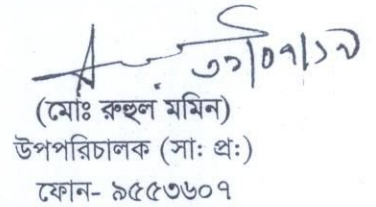 ৩১/০৭/১৭
(মোঃ রুহুল মমিন)
উপপরিচালক (সা: প্র:)
ফোন- ৯৫৫৩৬০৭